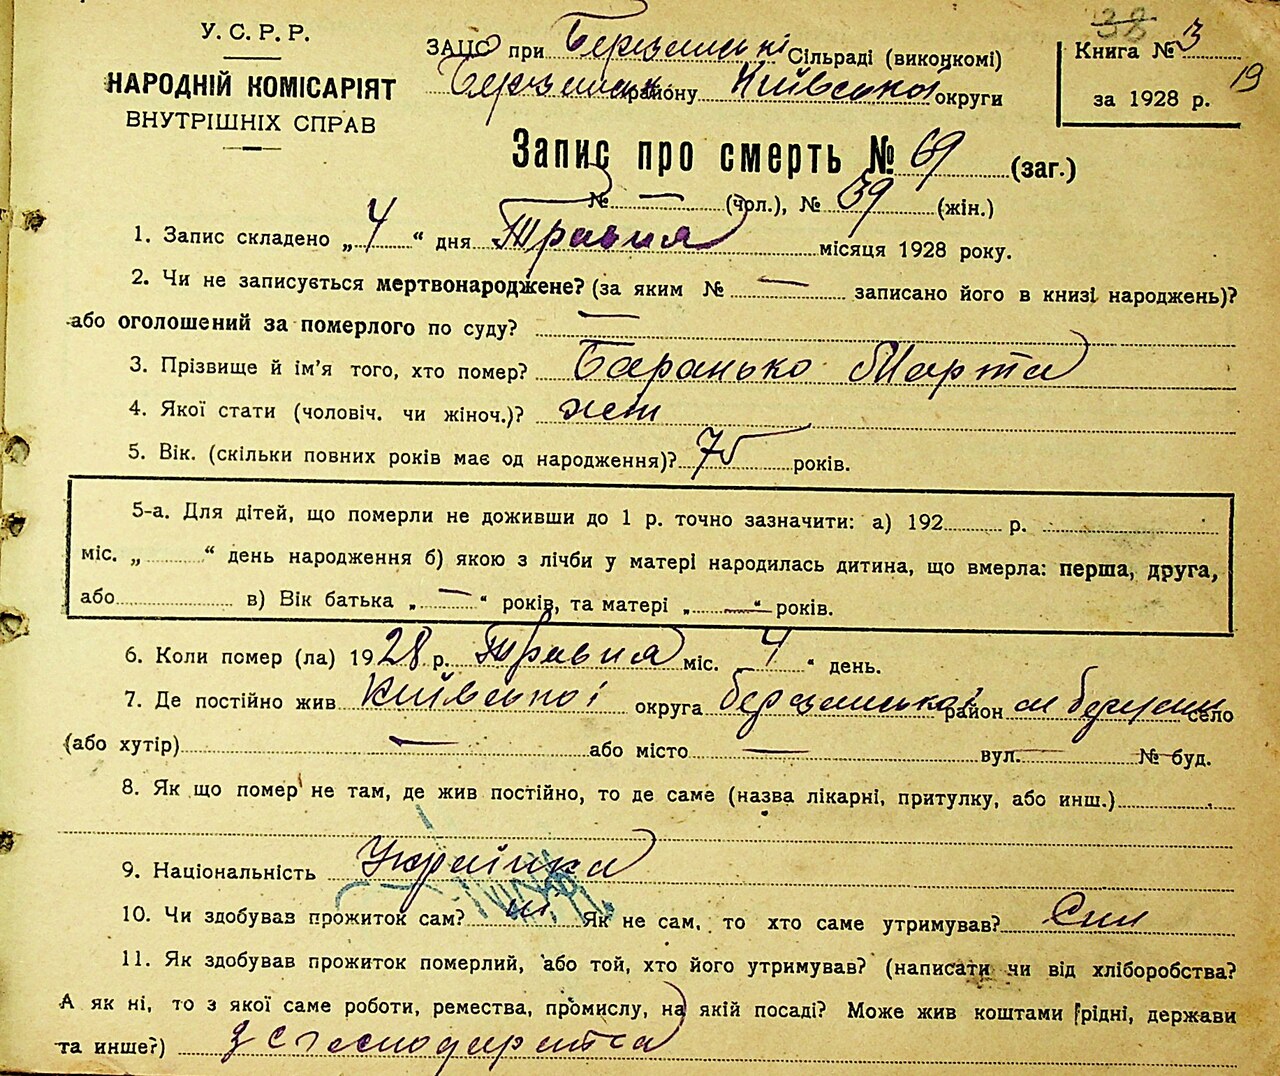 У. С. Р. Р.
НАРОДНІЙ КОМІСАРІЯТ
ВНУТРІШНІХ СПРАВ
ЗАЦС при Березанські Сільраді (виконкомі)
району Київської округи
38
Книга № 3
за 1928 р.
19
Запис про смерть № 69 (заг.)
№ — (чол.), № 39 (жін.)
1. Запис складено „ 4 “ дня Травня місяця 1928 року.
2. Чи не записується мертвонароджене? (за яким № — записано його в книзі народжень)?
або оголошений за померлого по суду? —
3. Прізвище й ім'я того, хто помер? Баранько Марта
4. Якої стати (чоловіч. чи жіноч.)? жін
5. Вік. (скільки повних років має од народження)? 75 років.
5-а. Для дітей, що померли не доживши до 1 р. точно зазначити: а) 192 р.
міс. „ “ день народження б) якою з лічби у матері народилась дитина, що вмерла: перша, друга,
або в) Вік батька „ — “ років, та матері „ — “ років.
6. Коли помер (ла) 1928 р. Травня міс. 4 “ день.
7. Де постійно жив Київської округа Березанської район село
(або хутір) — або місто — вул. — № буд.
8. Як що помер не там, де жив постійно, то де саме (назва лікарні, притулку, або инш.)
9. Національність Українка
10. Чи здобував прожиток сам? Як не сам, то хто саме утримував? Син
11. Як здобував прожиток померлий, або той, хто його утримував? (написати чи від хліборобства?
А як ні, то з якої саме роботи, ремества, промислу, на якій посаді? Може жив коштами рідні, держави
та инше?) з господарства